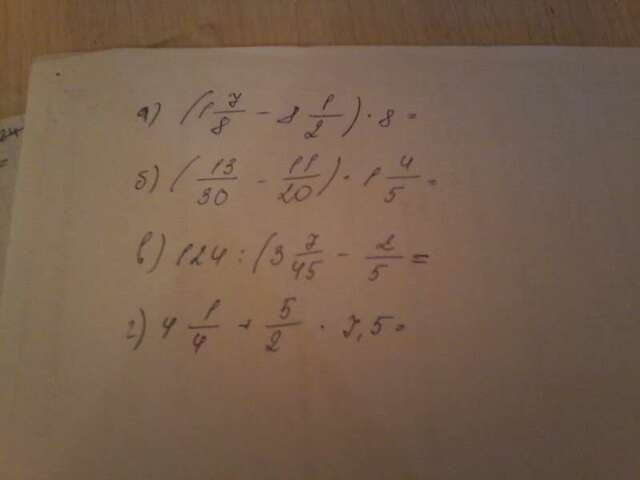 а) (1 7/8 - 8 1/2) · 8 =
б) (13/30 - 11/20) · 1 4/5 =
в) 124 : (3 7/45 - 2/5 =
г) 4 1/4 + 5/2 · 7,5 =